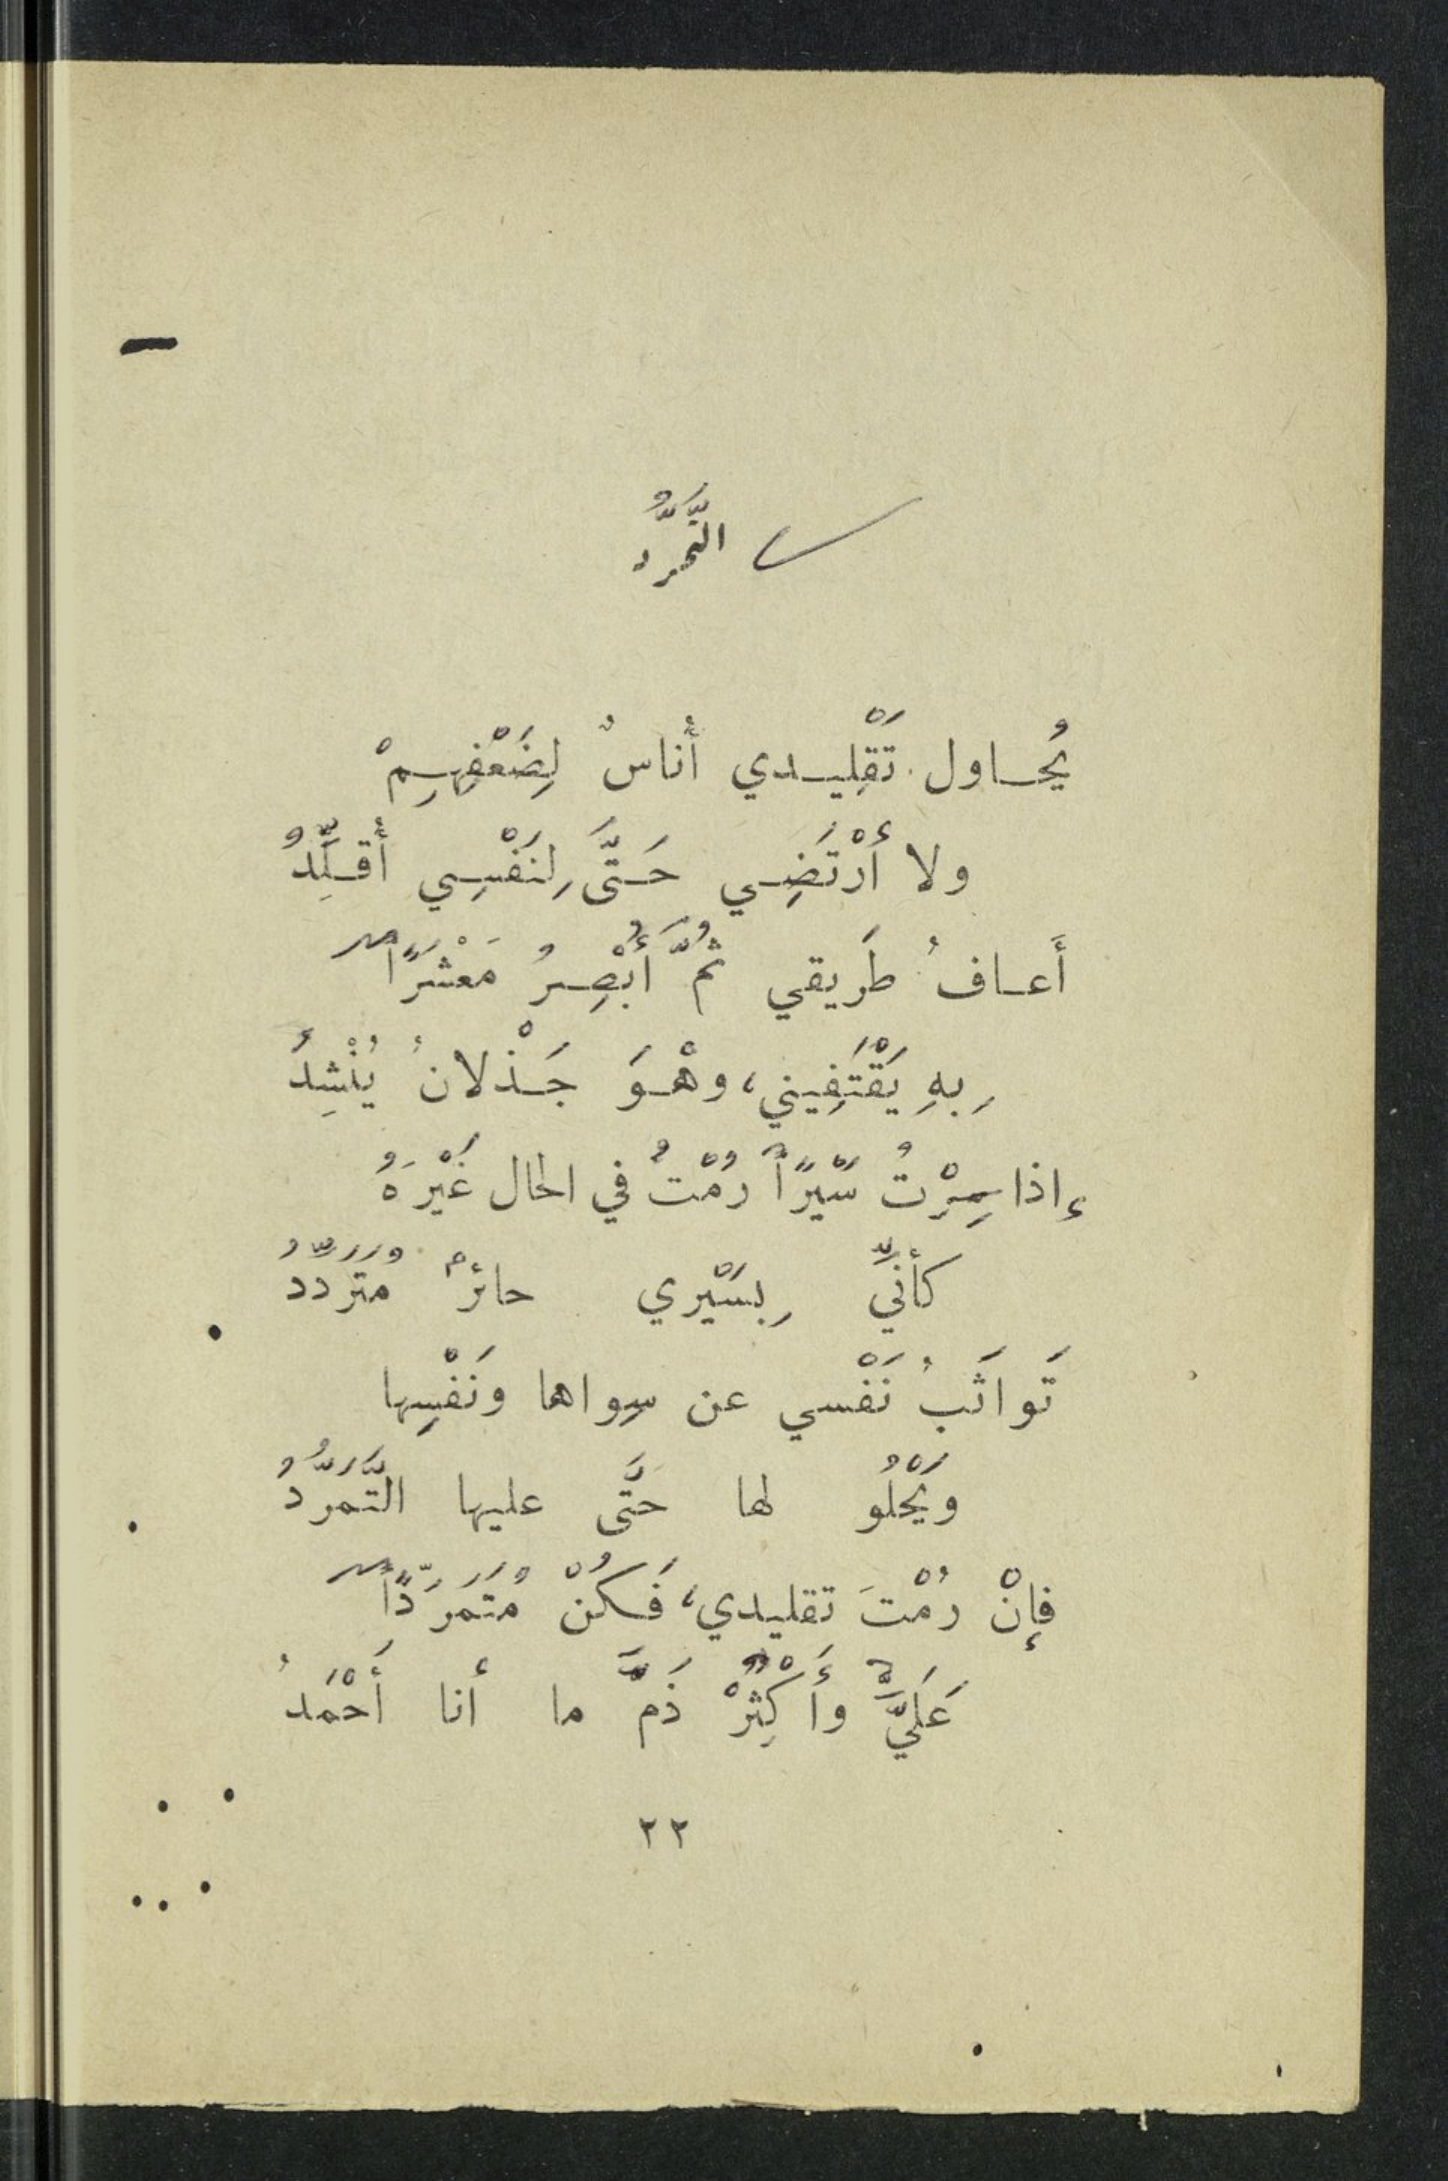 التَّمَرُّدُ
يُحاول تَقْلِيدي أُناسٌ لِضَعْفِهِمْ
ولا أَرْتَضِي حَتَّى لِنَفْسِي أُقَلِّدُ
أَعافُ طَريقي ثُمَّ أُبْصِرُ مَعْشَرًا
بِهِ يَقْتَفِيني، وهْوَ جَذْلانُ يُنْشِدُ
إذا سِرْتُ سَيْرًا رُمْتُ في الحال غَيْرَهُ
كأنِّي بِسَيْري حائرٌ مُتَرَدِّدُ
تَواثَبُ نَفْسي عن سِواها ونَفْسِها
ويَحْلُو لها حَتَّى عليها التَّمَرُّدُ
فإنْ رُمْتَ تقليدي، فَكُنْ مُتَمَرِّدًا
عَلَيَّ وأَكْثِرْ ذَمَّ ما أنا أَحْمَدُ
٢٢